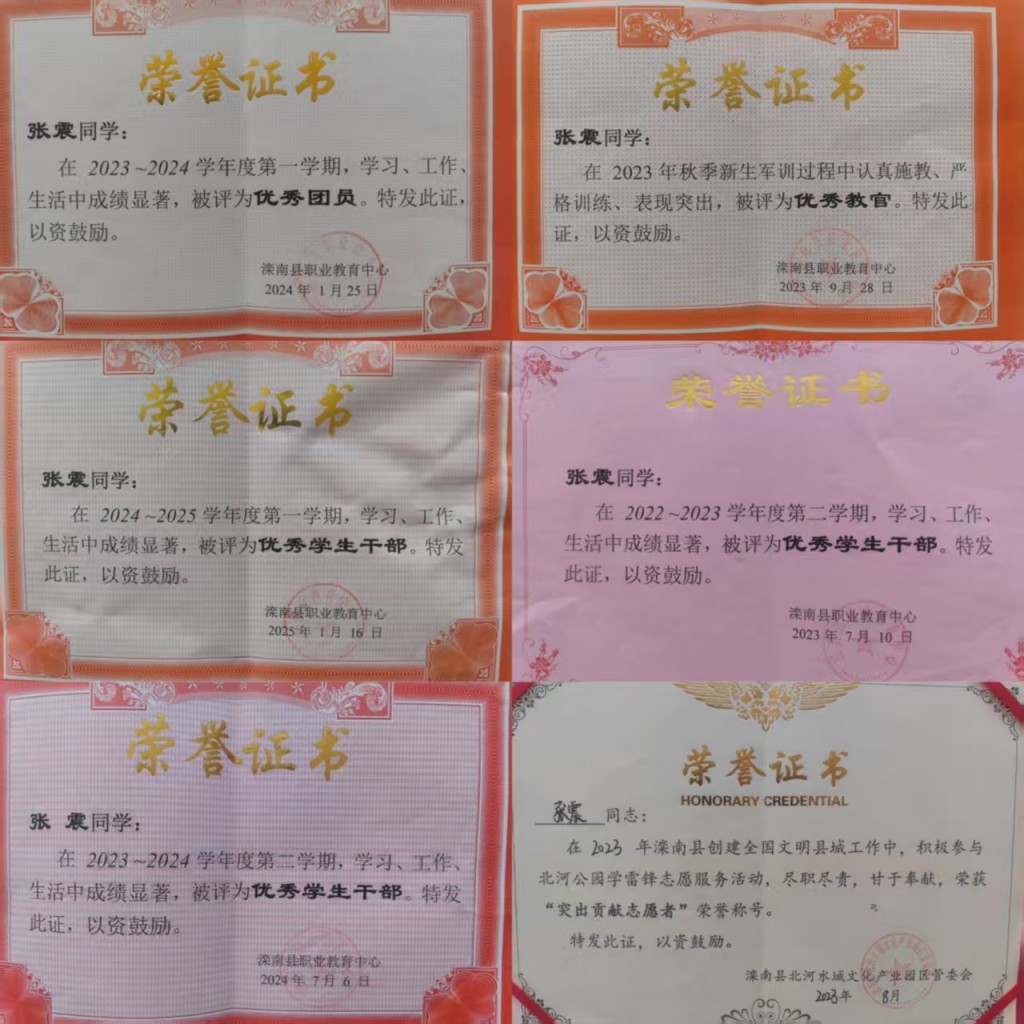 荣誉证书
张震同学：
在 2023~2024 学年度第一学期，学习、工作、
生活中成绩显著，被评为优秀团员。特发此证，
以资鼓励。
滦南县职业教育中心
2024 年 1 月 25 日
荣誉证书
张震同学：
在 2023 年秋季新生军训过程中认真施教、严
格训练、表现突出，被评为优秀教官。特发此
证，以资鼓励。
滦南县职业教育中心
2023 年 9 月 28 日
荣誉证书
张震同学：
在 2024~2025 学年度第一学期，学习、工作、
生活中成绩显著，被评为优秀学生干部。特发
此证，以资鼓励。
滦南县职业教育中心
2025 年 1 月 16 日
荣誉证书
张震同学：
在 2022~2023 学年度第二学期，学习、工作、
生活中成绩显著，被评为优秀学生干部。特发
此证，以资鼓励。
滦南县职业教育中心
2023 年 7 月 10 日
荣誉证书
张 震同学：
在 2023~2024 学年度第二学期，学习、工作、
生活中成绩显著，被评为优秀学生干部。特发
此证，以资鼓励。
滦南县职业教育中心
2024 年 7 月 6 日
荣誉证书
HONORARY CREDENTIAL
张震 同志：
在 2023 年滦南县创建全国文明县城工作中，积极参与
北河公园学雷锋志愿服务活动，尽职尽责，甘于奉献，荣获
“突出贡献志愿者”荣誉称号。
特发此证，以资鼓励。
滦南县北河水城文化产业园区管委会
2023年 8月